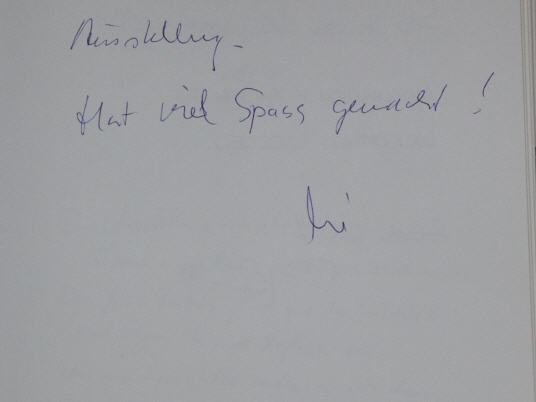 Ausstellung.
Hat viel Spass gemacht!